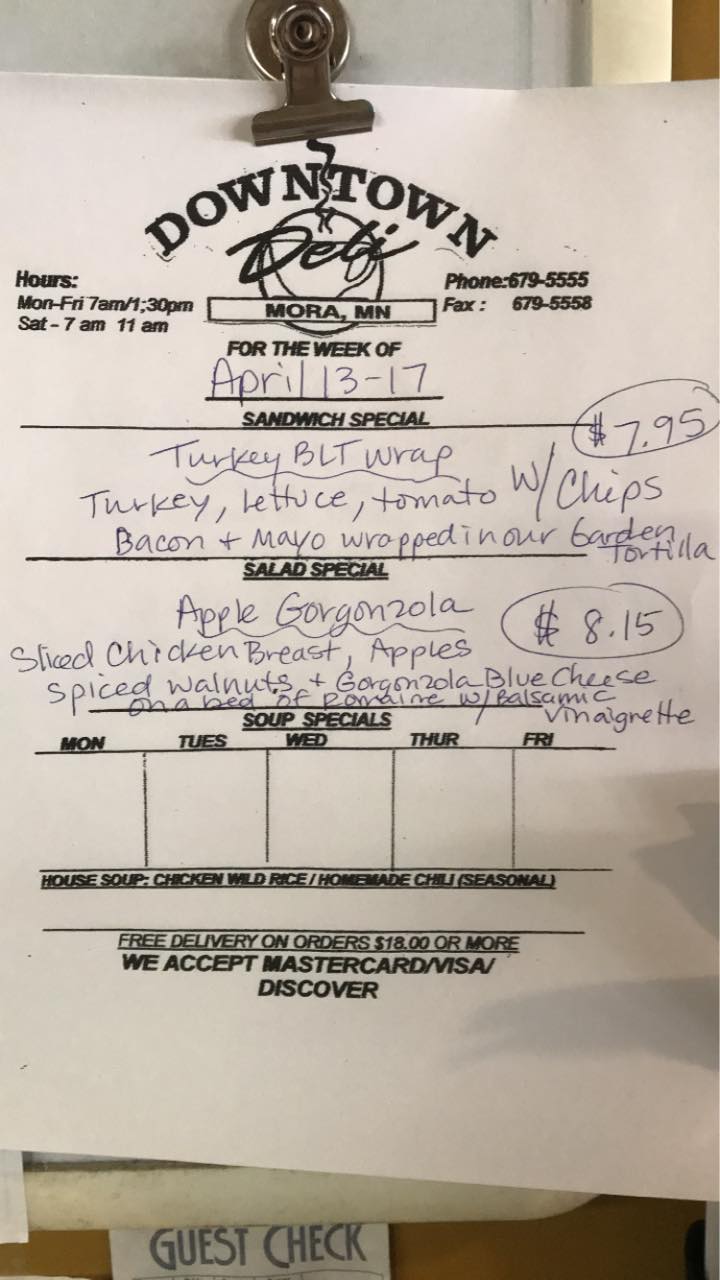 DOWNTOWN
Deli
MORA, MN
Hours:
Mon-Fri 7am/1;30pm
Sat - 7 am 11 am
Phone:679-5555
Fax : 679-5558
FOR THE WEEK OF
April 13-17
SANDWICH SPECIAL
$7.95
Turkey BLT wrap
Turkey, lettuce, tomato W/ Chips
Bacon + Mayo wrapped in our Garden
Tortilla
SALAD SPECIAL
Apple Gorgonzola
$ 8.15
Sliced Chicken Breast, Apples
Spiced walnuts + Gorgonzola Blue Cheese
on a bed of Romaine w/ Balsamic
Vinaigrette
SOUP SPECIALS
MON TUES WED THUR FRI
HOUSE SOUP: CHICKEN WILD RICE / HOMEMADE CHILI (SEASONAL)
FREE DELIVERY ON ORDERS $18.00 OR MORE
WE ACCEPT MASTERCARD/VISA/
DISCOVER
GUEST CHECK